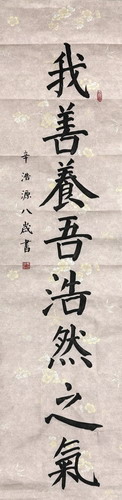 我善養吾浩然之氣
辛浩源八歲書